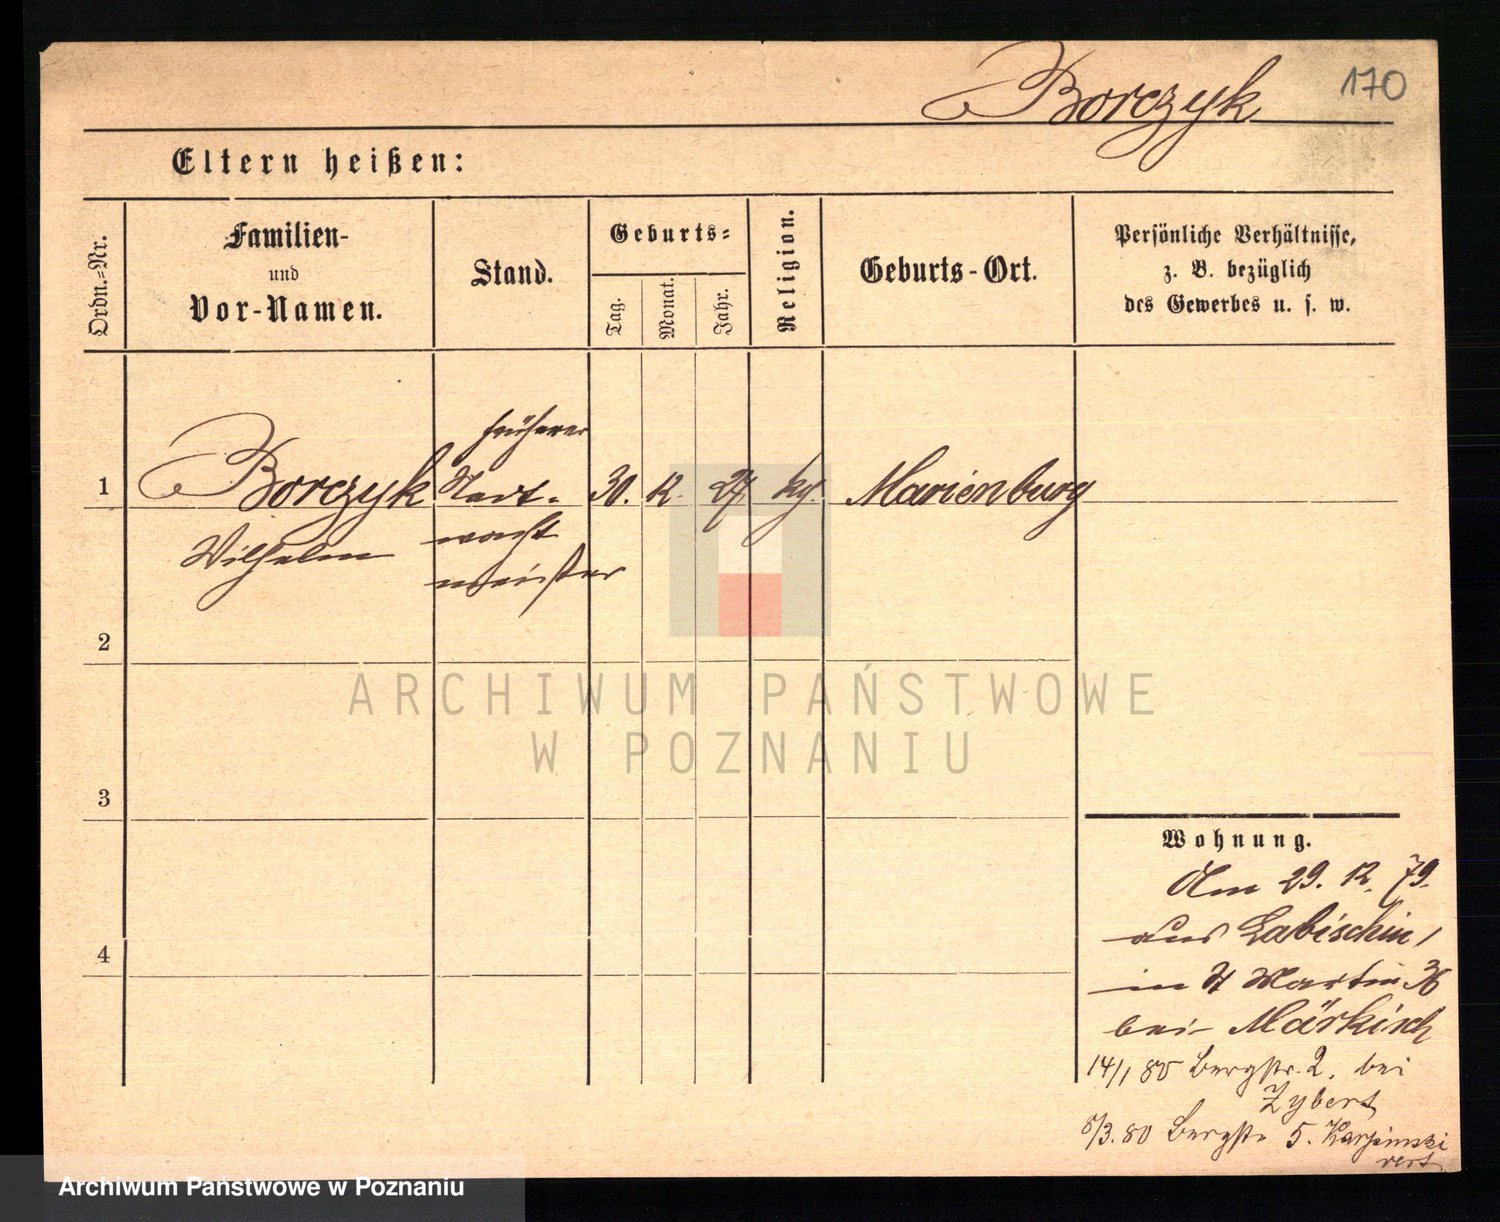 Borczyk 170
Eltern heißen:
Ordn.-Nr.
Familien-
und
Vor-Namen.
Stand.
Geburts-
Tag.
Monat.
Jahr.
Religion.
Geburts-Ort.
Persönliche Verhältnisse,
z. B. bezüglich
des Gewerbes u. s. w.
1
Borczyk
Wilhelm
früherer
Stadt-
wacht
meister
30. 12. 27
Marienburg
2
3
4
ARCHIWUM PAŃSTWOWE
W POZNANIU
Wohnung.
Am 29. 12. 79.
aus Labischin,
in St Martin 36
bei Märkisch
14/1 80 Bergstr. 2. bei
Zybert
8/3. 80 Bergstr 5. Karpinski
Archiwum Państwowe w Poznaniu